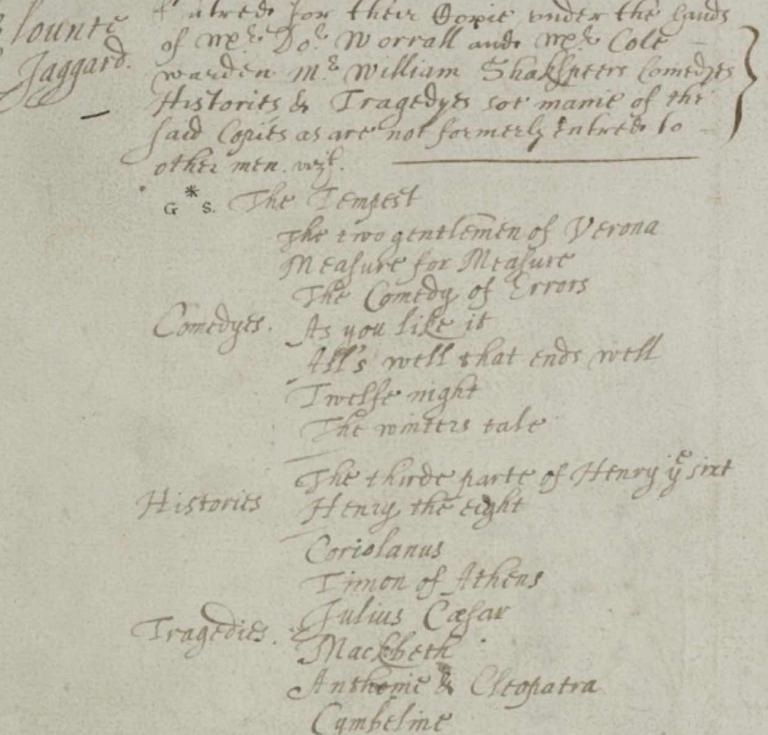 lounte
Jaggard.
Entred for their Copie vnder the hands
of Mr. Dor. Worrall and Mr. Cole
warden Mr. William Shakspeers Comedyes
Histories & Tragedyes soe manie of the
said Copies as are not formerly entred to
other men. vizt.
G * S. The Tempest
The two gentlemen of Verona
Measure for Measure
The Comedy of Errors
Comedyes. As you like it
All's well that ends well
Twelfe night
The winters tale
The thirde parte of Henry ye sixt
Histories Henry the eight
Coriolanus
Timon of Athens
Julius Cæsar
Tragedies. Mackbeth
Anthonie & Cleopatra
Cymbeline